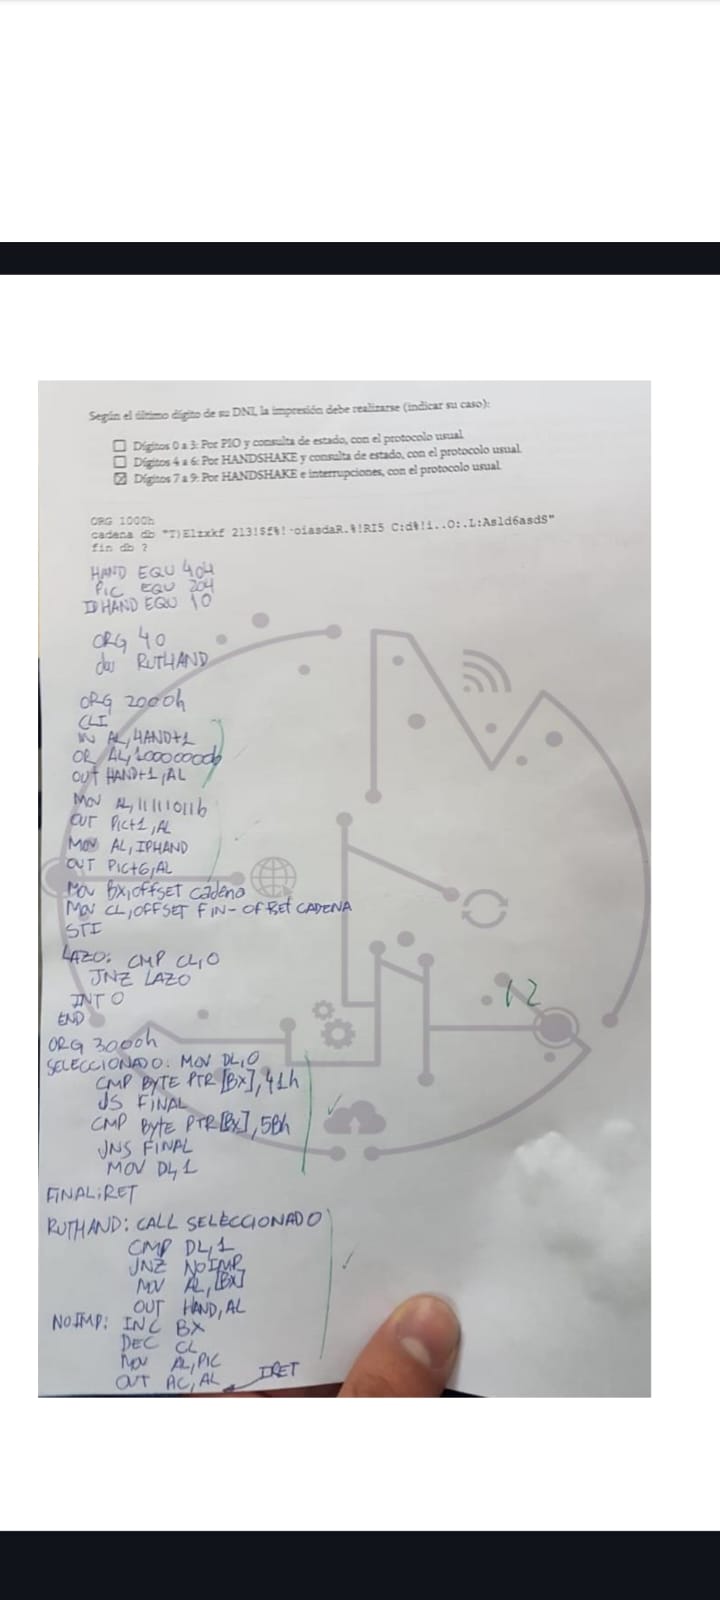 Según el último dígito de su DNI, la impresión debe realizarse (indicar su caso):
Dígitos 0 a 3: Por PIO y consulta de estado, con el protocolo usual
Dígitos 4 a 6: Por HANDSHAKE y consulta de estado, con el protocolo usual.
Dígitos 7 a 9: Por HANDSHAKE e interrupciones, con el protocolo usual
ORG 1000h
cadena db "T)Elzxkf 213!Sf%!-oiasdaR.%!RI5 C:d%!i..O:.L:Asld6asdS"
fin db ?
HAND EQU 40H
PIC EQU 20H
IDHAND EQU 10
ORG 40
dw RUTHAND
ORG 2000h
CLI
IN AL, HAND+1
OR AL, 10000000b
OUT HAND+1, AL
MOV AL, 11111011b
OUT PIC+1, AL
MOV AL, IPHAND
OUT PIC+6, AL
MOV BX, OFFSET cadena
MOV CL, OFFSET FIN-OFFSET CADENA
STI
LAZO: CMP CL, 0
JNZ LAZO
INT 0
END
ORG 3000h
SELECCIONADO: MOV DL, 0
CMP BYTE PTR [BX], 41h
JS FINAL
CMP BYTE PTR [BX], 5Bh
JNS FINAL
MOV DL, 1
FINAL: RET
RUTHAND: CALL SELECCIONADO
CMP DL, 1
JNZ NOIMP
MOV AL, [BX]
OUT HAND, AL
NOIMP: INC BX
DEC CL
MOV AL, PIC
OUT AC, AL IRET